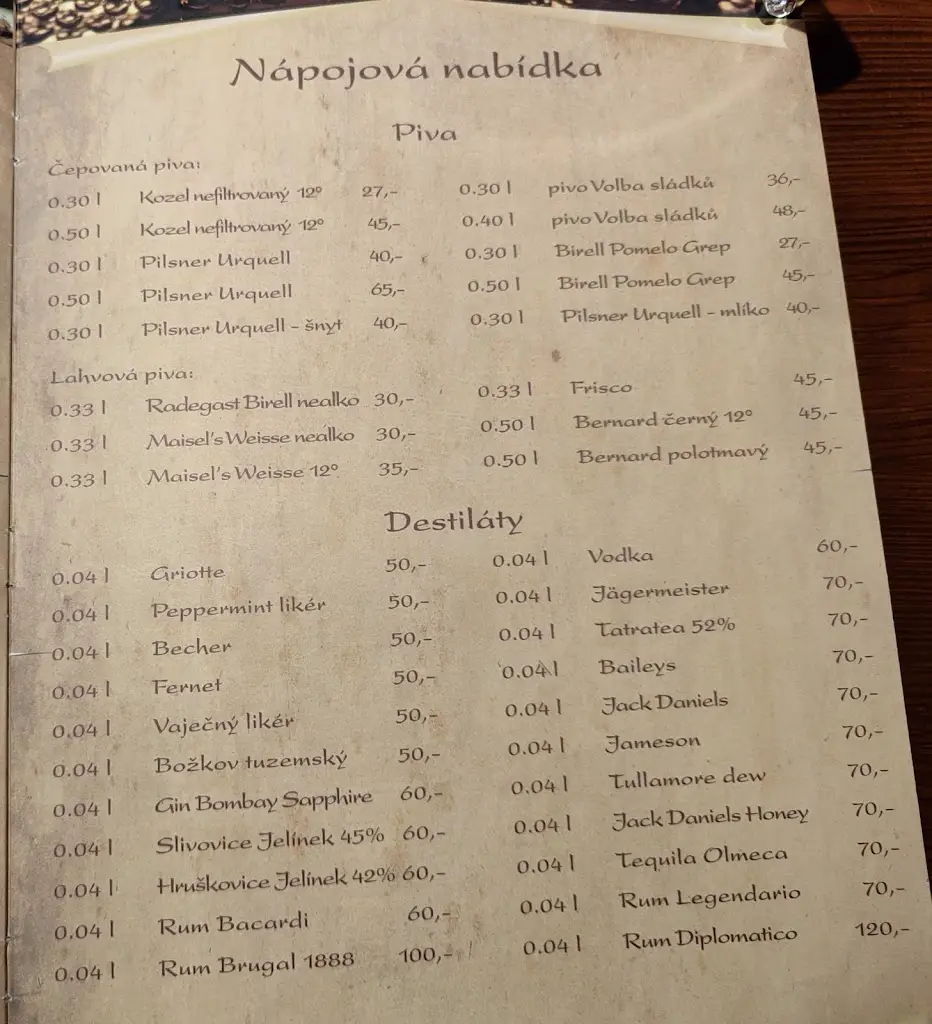 Nápojová nabídka
Piva
Čepovaná piva:
0.30 l Kozel nefiltrovaný 12° 27,- 0.30 l pivo Volba sládků 36,-
0.50 l Kozel nefiltrovaný 12° 45,- 0.40 l pivo Volba sládků 48,-
0.30 l Pilsner Urquell 40,- 0.30 l Birell Pomelo Grep 27,-
0.50 l Pilsner Urquell 65,- 0.50 l Birell Pomelo Grep 45,-
0.30 l Pilsner Urquell - šnyt 40,- 0.30 l Pilsner Urquell - mlíko 40,-
Lahvová piva:
0.33 l Radegast Birell nealko 30,- 0.33 l Frisco 45,-
0.33 l Maisel's Weisse nealko 30,- 0.50 l Bernard černý 12° 45,-
0.33 l Maisel's Weisse 12° 35,- 0.50 l Bernard polotmavý 45,-
Destiláty
0.04 l Griotte 50,- 0.04 l Vodka 60,-
0.04 l Peppermint likér 50,- 0.04 l Jägermeister 70,-
0.04 l Becher 50,- 0.04 l Tatratea 52% 70,-
0.04 l Fernet 50,- 0.04 l Baileys 70,-
0.04 l Vaječný likér 50,- 0.04 l Jack Daniels 70,-
0.04 l Božkov tuzemský 50,- 0.04 l Jameson 70,-
0.04 l Gin Bombay Sapphire 60,- 0.04 l Tullamore dew 70,-
0.04 l Slivovice Jelínek 45% 60,- 0.04 l Jack Daniels Honey 70,-
0.04 l Hruškovice Jelínek 42% 60,- 0.04 l Tequila Olmeca 70,-
0.04 l Rum Bacardi 60,- 0.04 l Rum Legendario 70,-
0.04 l Rum Brugal 1888 100,- 0.04 l Rum Diplomatico 120,-